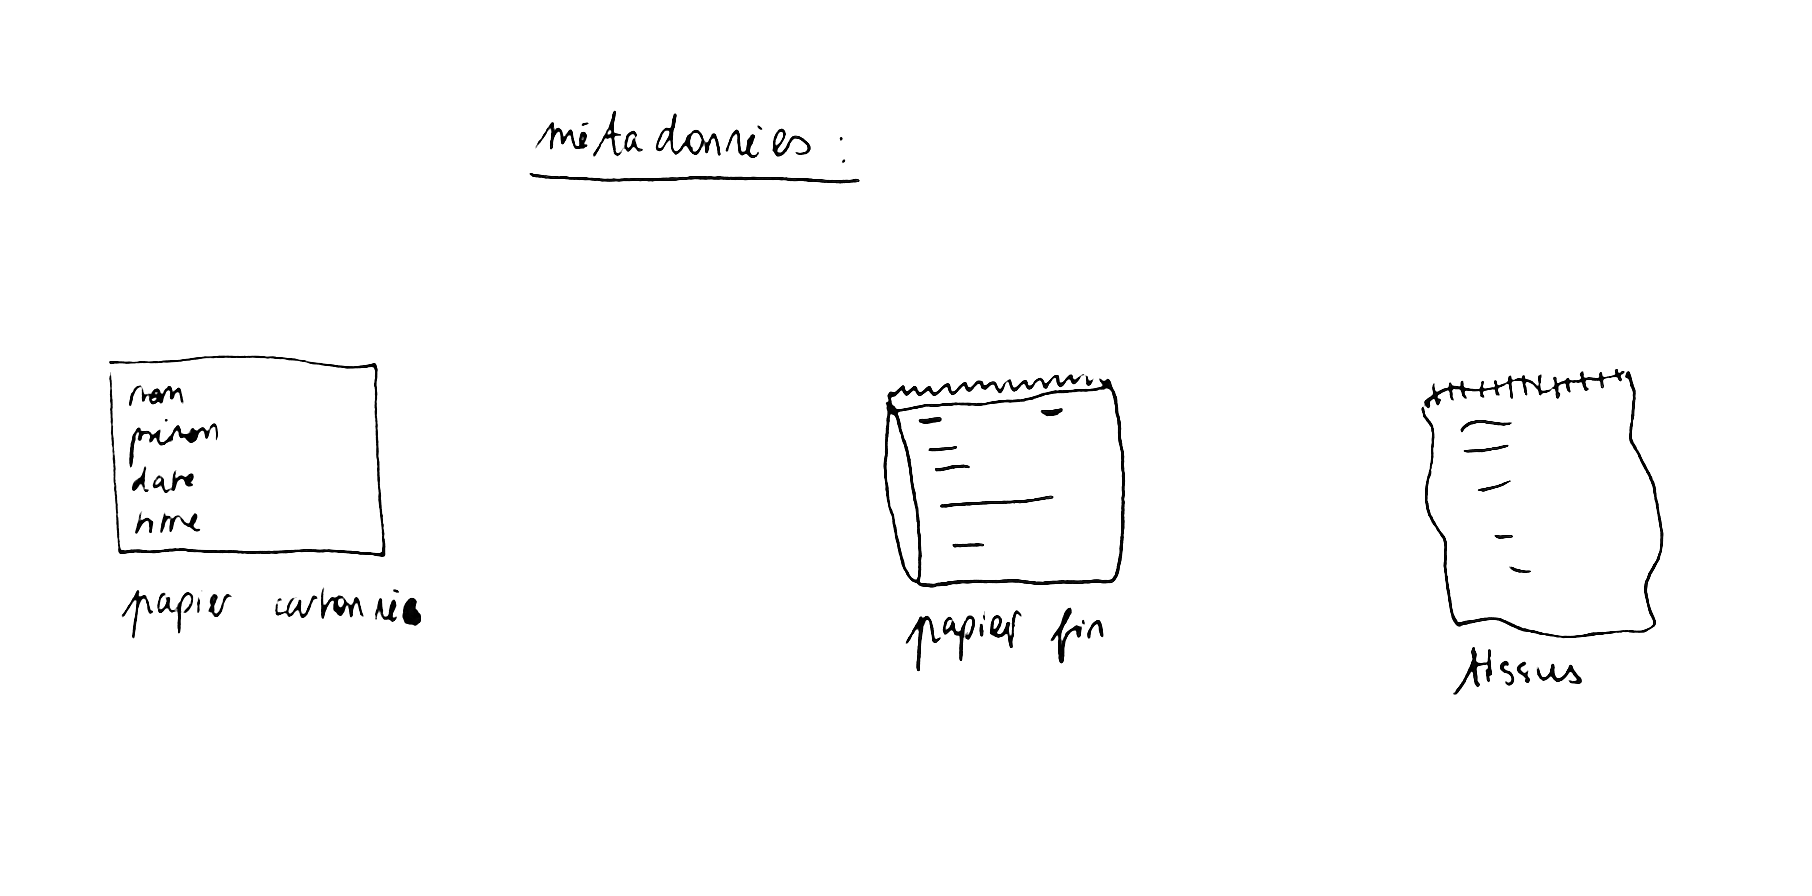 métadonnées :
nom
prénom
date
papier cartonné
papier fin
tissus